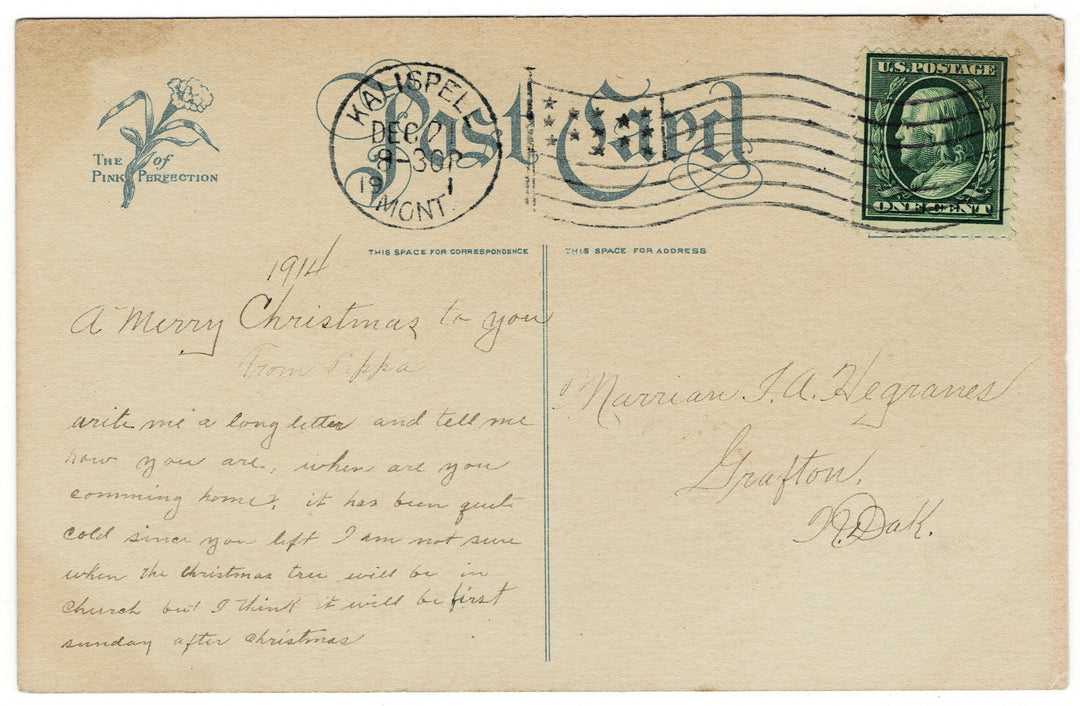 The Pink of Perfection
Post Card
KALISPELL
DEC
8-30P
19 1
MONT.
U.S. POSTAGE
ONE CENT
THIS SPACE FOR CORRESPONDENCE
THIS SPACE FOR ADDRESS
1914
A Merry Christmas to you
From Pappa
write me a long letter and tell me
how you are, when are you
comming home? it has been quite
cold since you left I am not sure
when the christmas tree will be in
church but I think it will be first
sunday after christmas
Marrian I. A. Hegranes
Grafton,
N. Dak.